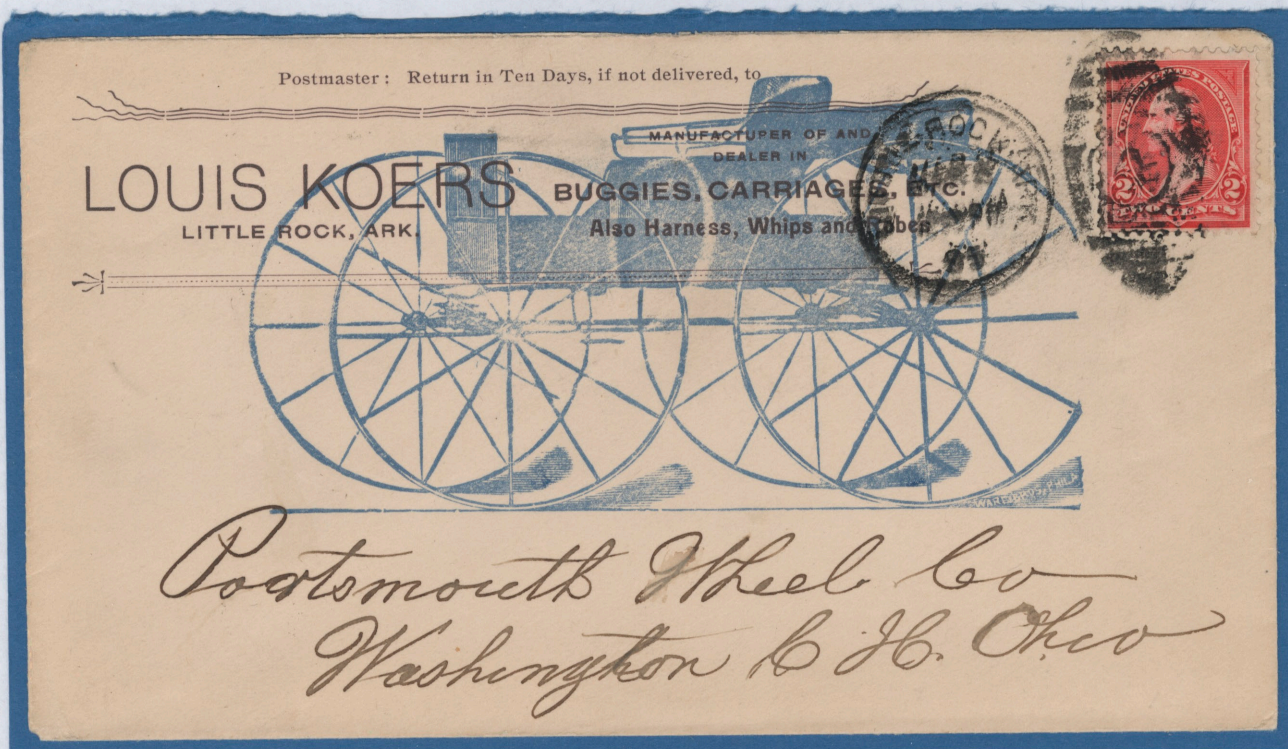 Postmaster: Return in Ten Days, if not delivered, to
LOUIS KOERS
LITTLE ROCK, ARK.
MANUFACTURER OF AND
DEALER IN
BUGGIES, CARRIAGES, ETC.
Also Harness, Whips and Robes
LITTLE ROCK, ARK.
UNITED STATES POSTAGE
2 2
TWO CENTS
WARD BROS. PHILA
Portsmouth Wheel Co
Washington C H. Ohio